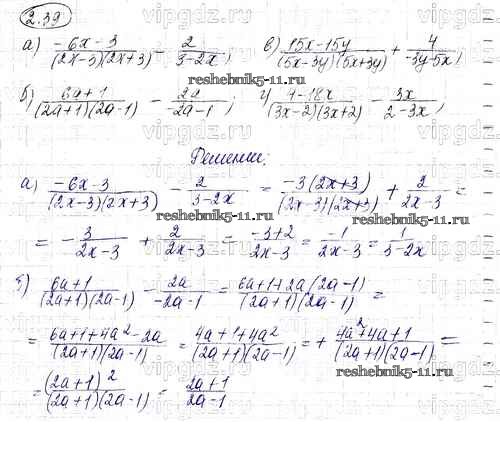 2.39
а) (-6x-3)/((2x-3)(2x+3)) - 2/(3-2x); в) (15x-15y)/((5x-3y)(5x+3y)) + 4/(-3y-5x);
б) (6a+1)/((2a+1)(2a-1)) - 2a/(-2a-1); г) (4-18x)/((3x-2)(3x+2)) - 3x/(2-3x);
Решение:
а) (-6x-3)/((2x-3)(2x+3)) - 2/(3-2x) = (-3(2x+3))/((2x-3)(2x+3)) + 2/(2x-3) =
= -3/(2x-3) + 2/(2x-3) = (-3+2)/(2x-3) = -1/(2x-3) = 1/(3-2x)
б) (6a+1)/((2a+1)(2a-1)) - 2a/(-2a-1) = (6a+1+2a(2a-1))/((2a+1)(2a-1)) =
= (6a+1+4a²-2a)/((2a+1)(2a-1)) = (4a+1+4a²)/((2a+1)(2a-1)) = + (4a²+4a+1)/((2a+1)(2a-1)) =
= (2a+1)²/((2a+1)(2a-1)) = (2a+1)/(2a-1)
reshebnik5-11.ru
reshebnik5-11.ru
reshebnik5-11.ru
reshebnik5-11.ru
reshebnik5-11.ru
vipgdz.ru